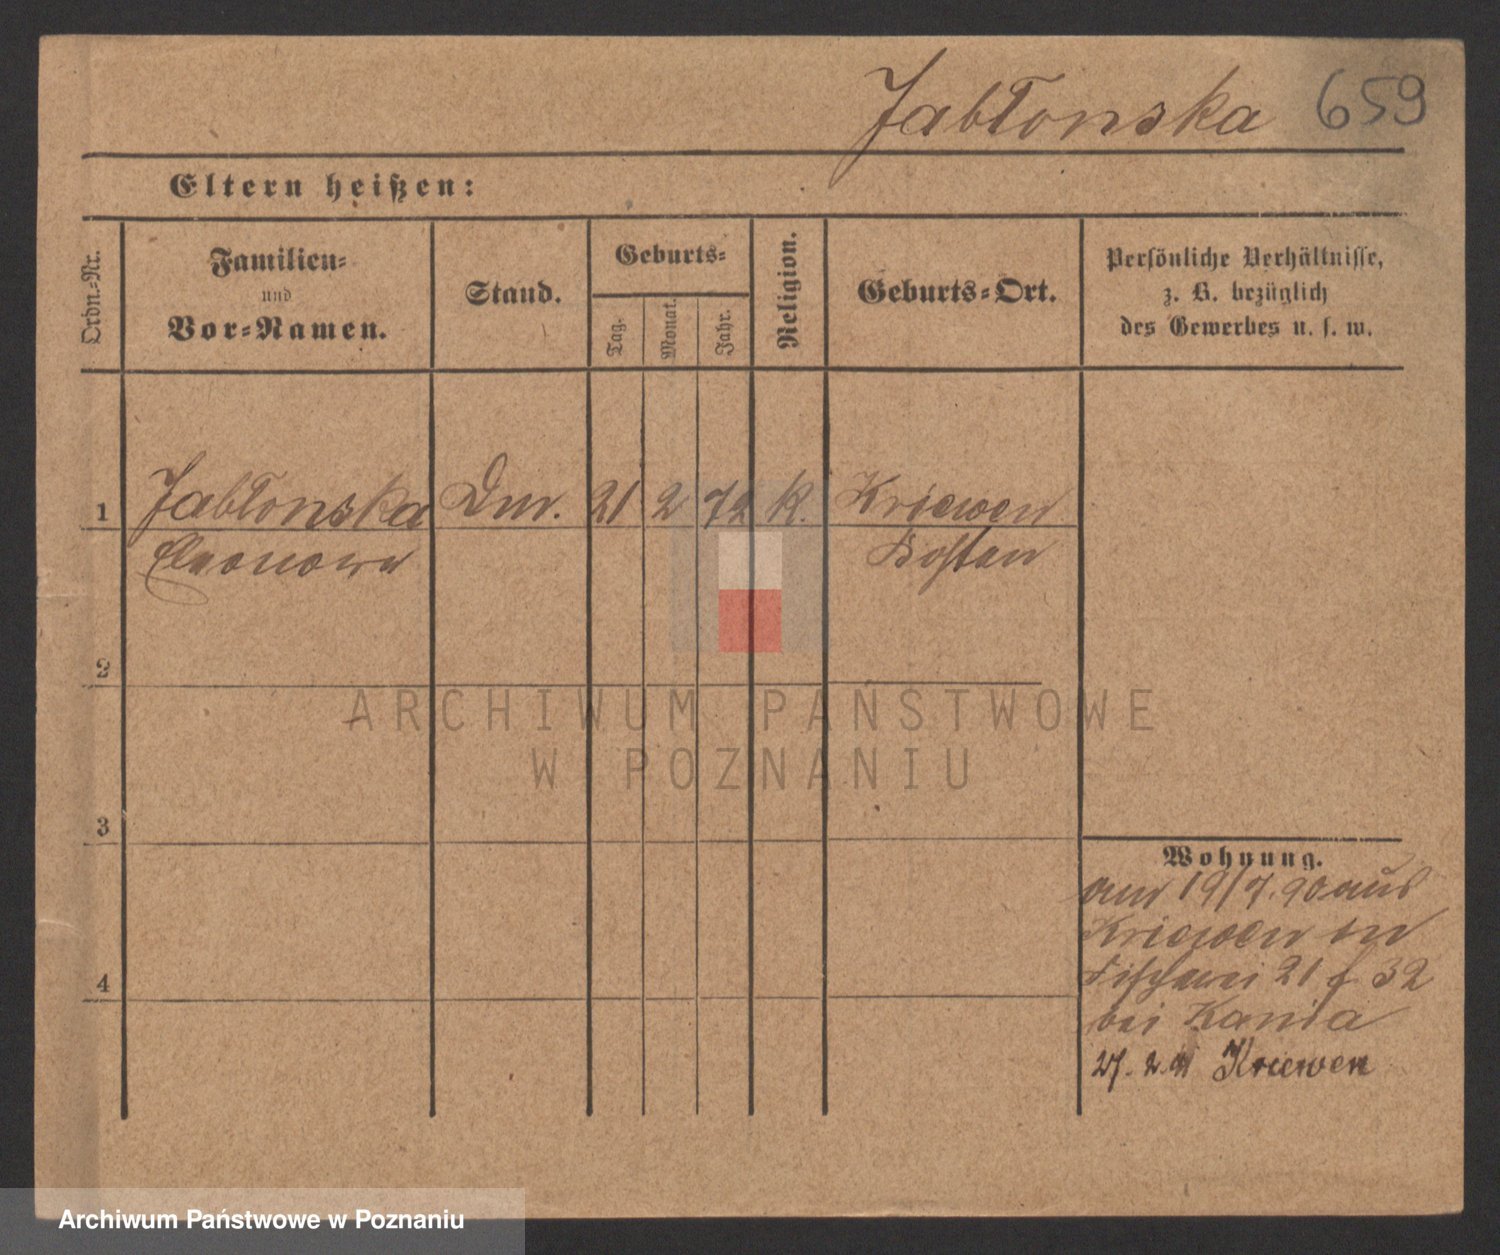 Jabłonska 659
Eltern heißen:
Ordn.-Nr.
Familien-
und
Vor-Namen.
Stand.
Geburts-
Tag.
Monat.
Jahr.
Religion.
Geburts-Ort.
Persönliche Verhältnisse,
z. B. bezüglich
des Gewerbes u. s. w.
1 Jabłonska 21 2 72 K. Kriewen
Eleonora Kosten
2
ARCHIWUM PAŃSTWOWE
W POZNANIU
3
4
Wohnung.
am 19/7. 90 aus
Kriewen
Fischerei 21 32
bei Kania
27. 2. 91 Kriewen
Archiwum Państwowe w Poznaniu